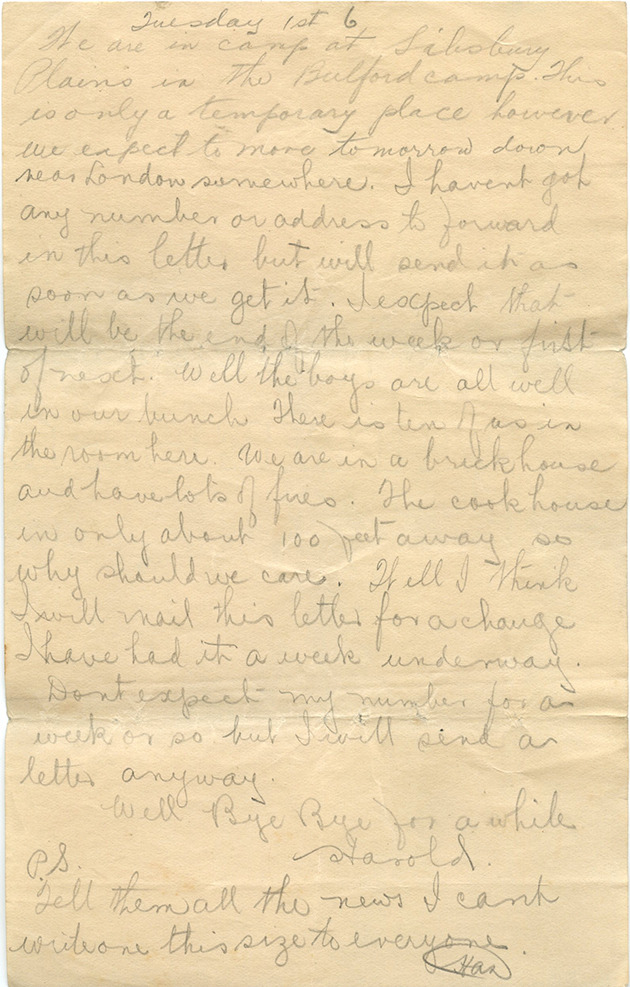 Tuesday 1st 6
We are in camp at Salsbury
Plains in the Bulford camp. This
is only a temporary place however
we expect to move tomorrow down
near London somewhere. I havent got
any number or address to forward
in this letter but will send it as
soon as we get it. I expect that
will be the end of the week or first
of next. Well the boys are all well
in our bunch There is ten of us in
the room here. We are in a brick house
and have lots of fires. The cookhouse
in only about 100 feet away so
why should we care. Well I think
I will mail this letter for a change
I have had it a week underway.
Dont expect my number for a
week or so but I will send a
letter anyway.
Well Bye Bye for a while
Harold.
P.S.
Tell them all the news I cant
write one this size to everyone.
Har